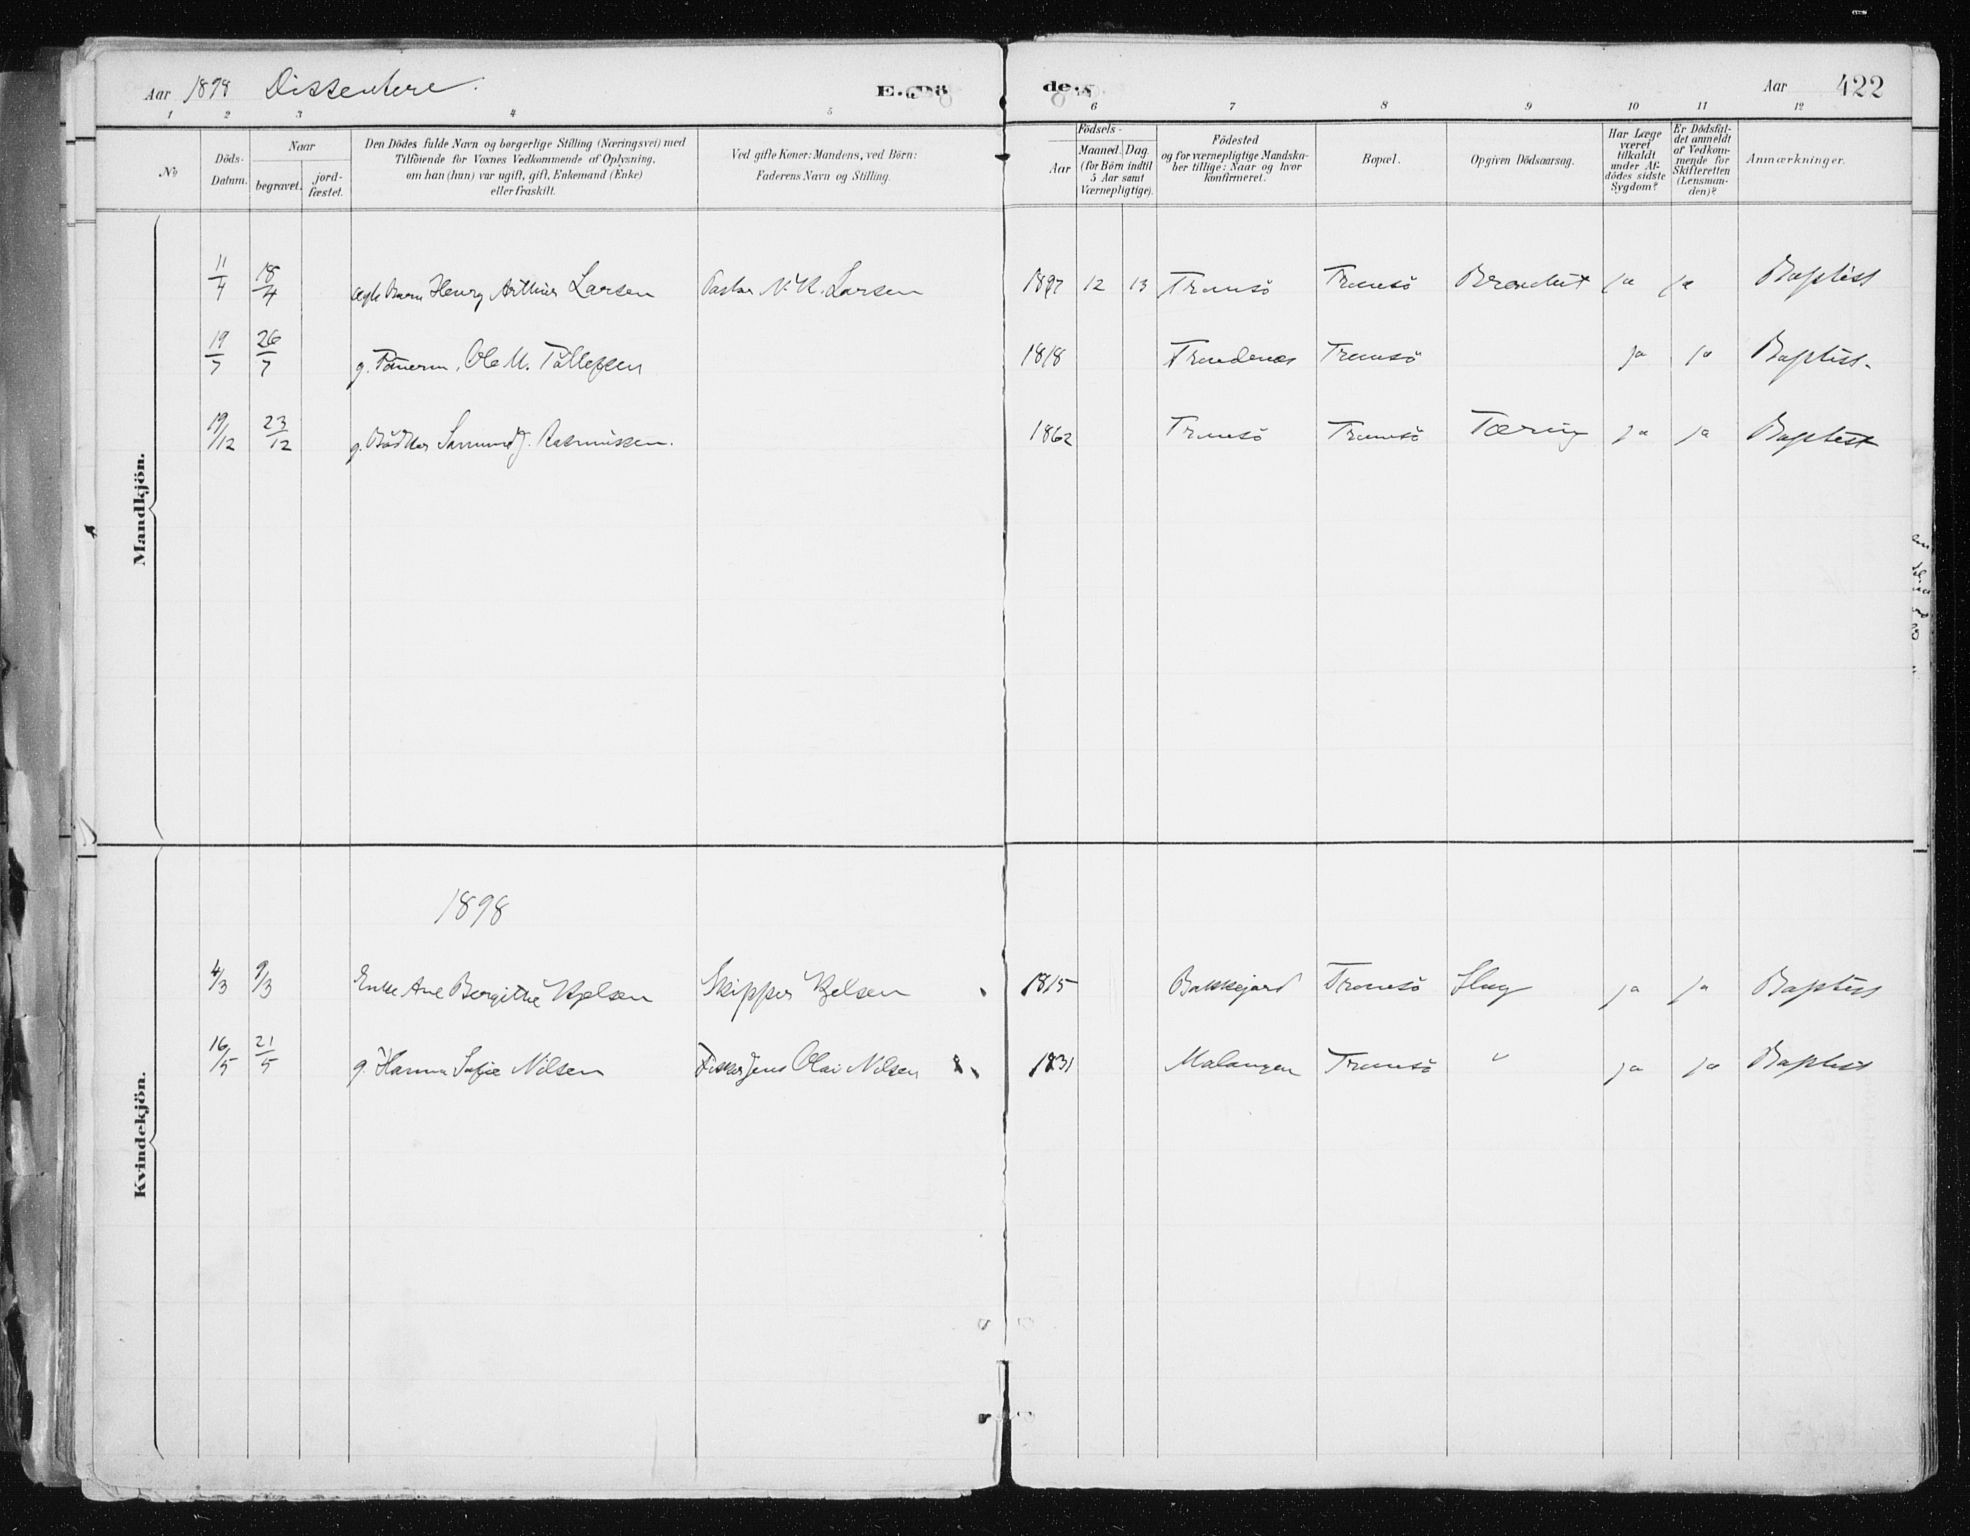 Aar 1898 Dissentere. E. Dö de. Aar 422
1 2 3 4 5 6 7 8 9 10 11 12
No
Döds-Datum.
Naar
begravet.
jord-fæstet.
Den Dödes fulde Navn og borgerlige Stilling (Næringsvei) med
Tilföiende for Voxnes Vedkommende af Oplysning,
om han (hun) var ugift, gift, Enkemand (Enke)
eller fraskilt.
Ved gifte Koner: Mandens, ved Börn:
Faderens Navn og Stilling.
Födsels-
Aar
Maaned. Dag.
(for Börn indtil
5 Aar samt
Værnepligtige).
Födested
og for værnepligtige Mandska-
ber tillige: Naar og hvor
konfirmeret.
Bopæl.
Opgiven Dödsaarsag.
Har Læge
været
tilkaldt
under Af-
dödes sidste
Sygdom?
Er Dödsfal-
det anmeldt
af Vedkom-
mende for
Skifteretten
(Lensman-
den)?
Anmærkninger.
Mandkjön.
11/4 18/4 Henry Arthur Larsen Pastor N. K. Larsen 1897 12 13 Tromsö Tromsö ja ja Baptist
19/7 26/7 g. Ole M. Tollefsen 1818 Trondenes Tromsö ja ja Baptist.
19/12 23/12 g. Bödker Samund J. Rasmussen. 1862 Tromsö Tromsö Tæring ja ja Baptist
Kvindekjön.
1898
4/3 9/3 Enke Ane Bergithe Kjelsen Skipper Kjelsen 1815 Bakkejord Tromsö Slag ja ja Baptist
16/5 21/5 g. Hanna Sofie Nilsen Fisker Jens Olai Nilsen 1831 Malangen Tromsö " ja ja Baptist